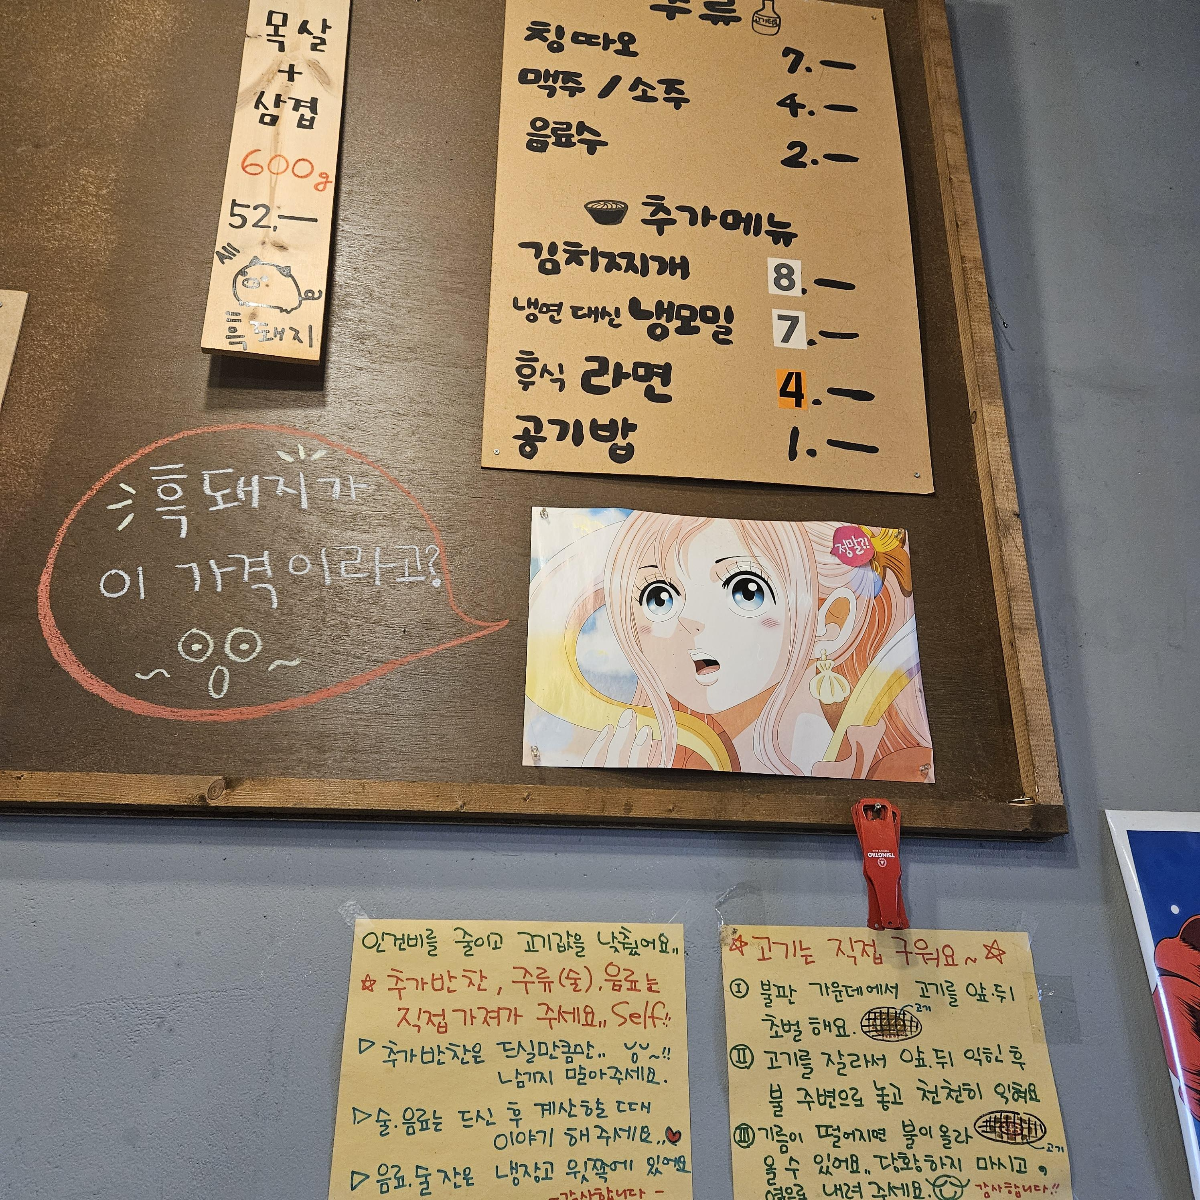 목살
+
삼겹
600g
52.—
흑돼지
주류
고기다
칭따오 7.—
맥주 / 소주 4.—
음료수 2.—
추가메뉴
김치찌개 8.—
냉면 대신 냉모밀 7.—
후식 라면 4.—
공기밥 1.—
흑돼지가
이 가격이라고?
정말?!
TSINGTAO
인건비를 줄이고 고기값을 낮췄어요,,
☆ 추가반찬, 주류(술).음료는
직접가져가 주세요,, Self!!
▷ 추가반찬은 드실만큼만,, ~!!
남기지 말아주세요.
▷ 술.음료는 드신 후 계산할 때
이야기 해주세요,,♥
▷ 음료.술 잔은 냉장고 윗쪽에 있어요
-감사합니다-
☆고기는 직접 구워요~☆
Ⅰ 불판 가운데에서 고기를 앞.뒤
초벌 해요. 고기
Ⅱ 고기를 잘라서 앞.뒤 익힌 후
불 주변으로 놓고 천천히 익혀요
고기
Ⅲ 기름이 떨어지면 불이 올라
올 수 있어요,, 당황하지 마시고,
옆으로 내려 주세요. 감사합니다!!